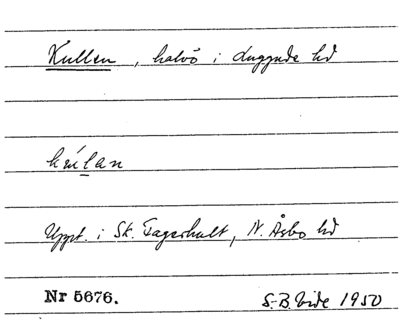 Kullen, halvö i Luggude hd
kułan
Uppt. i Sk. Fagerhult, N. Åsbo hd
Nr 5676. S.-B. Vide 1950